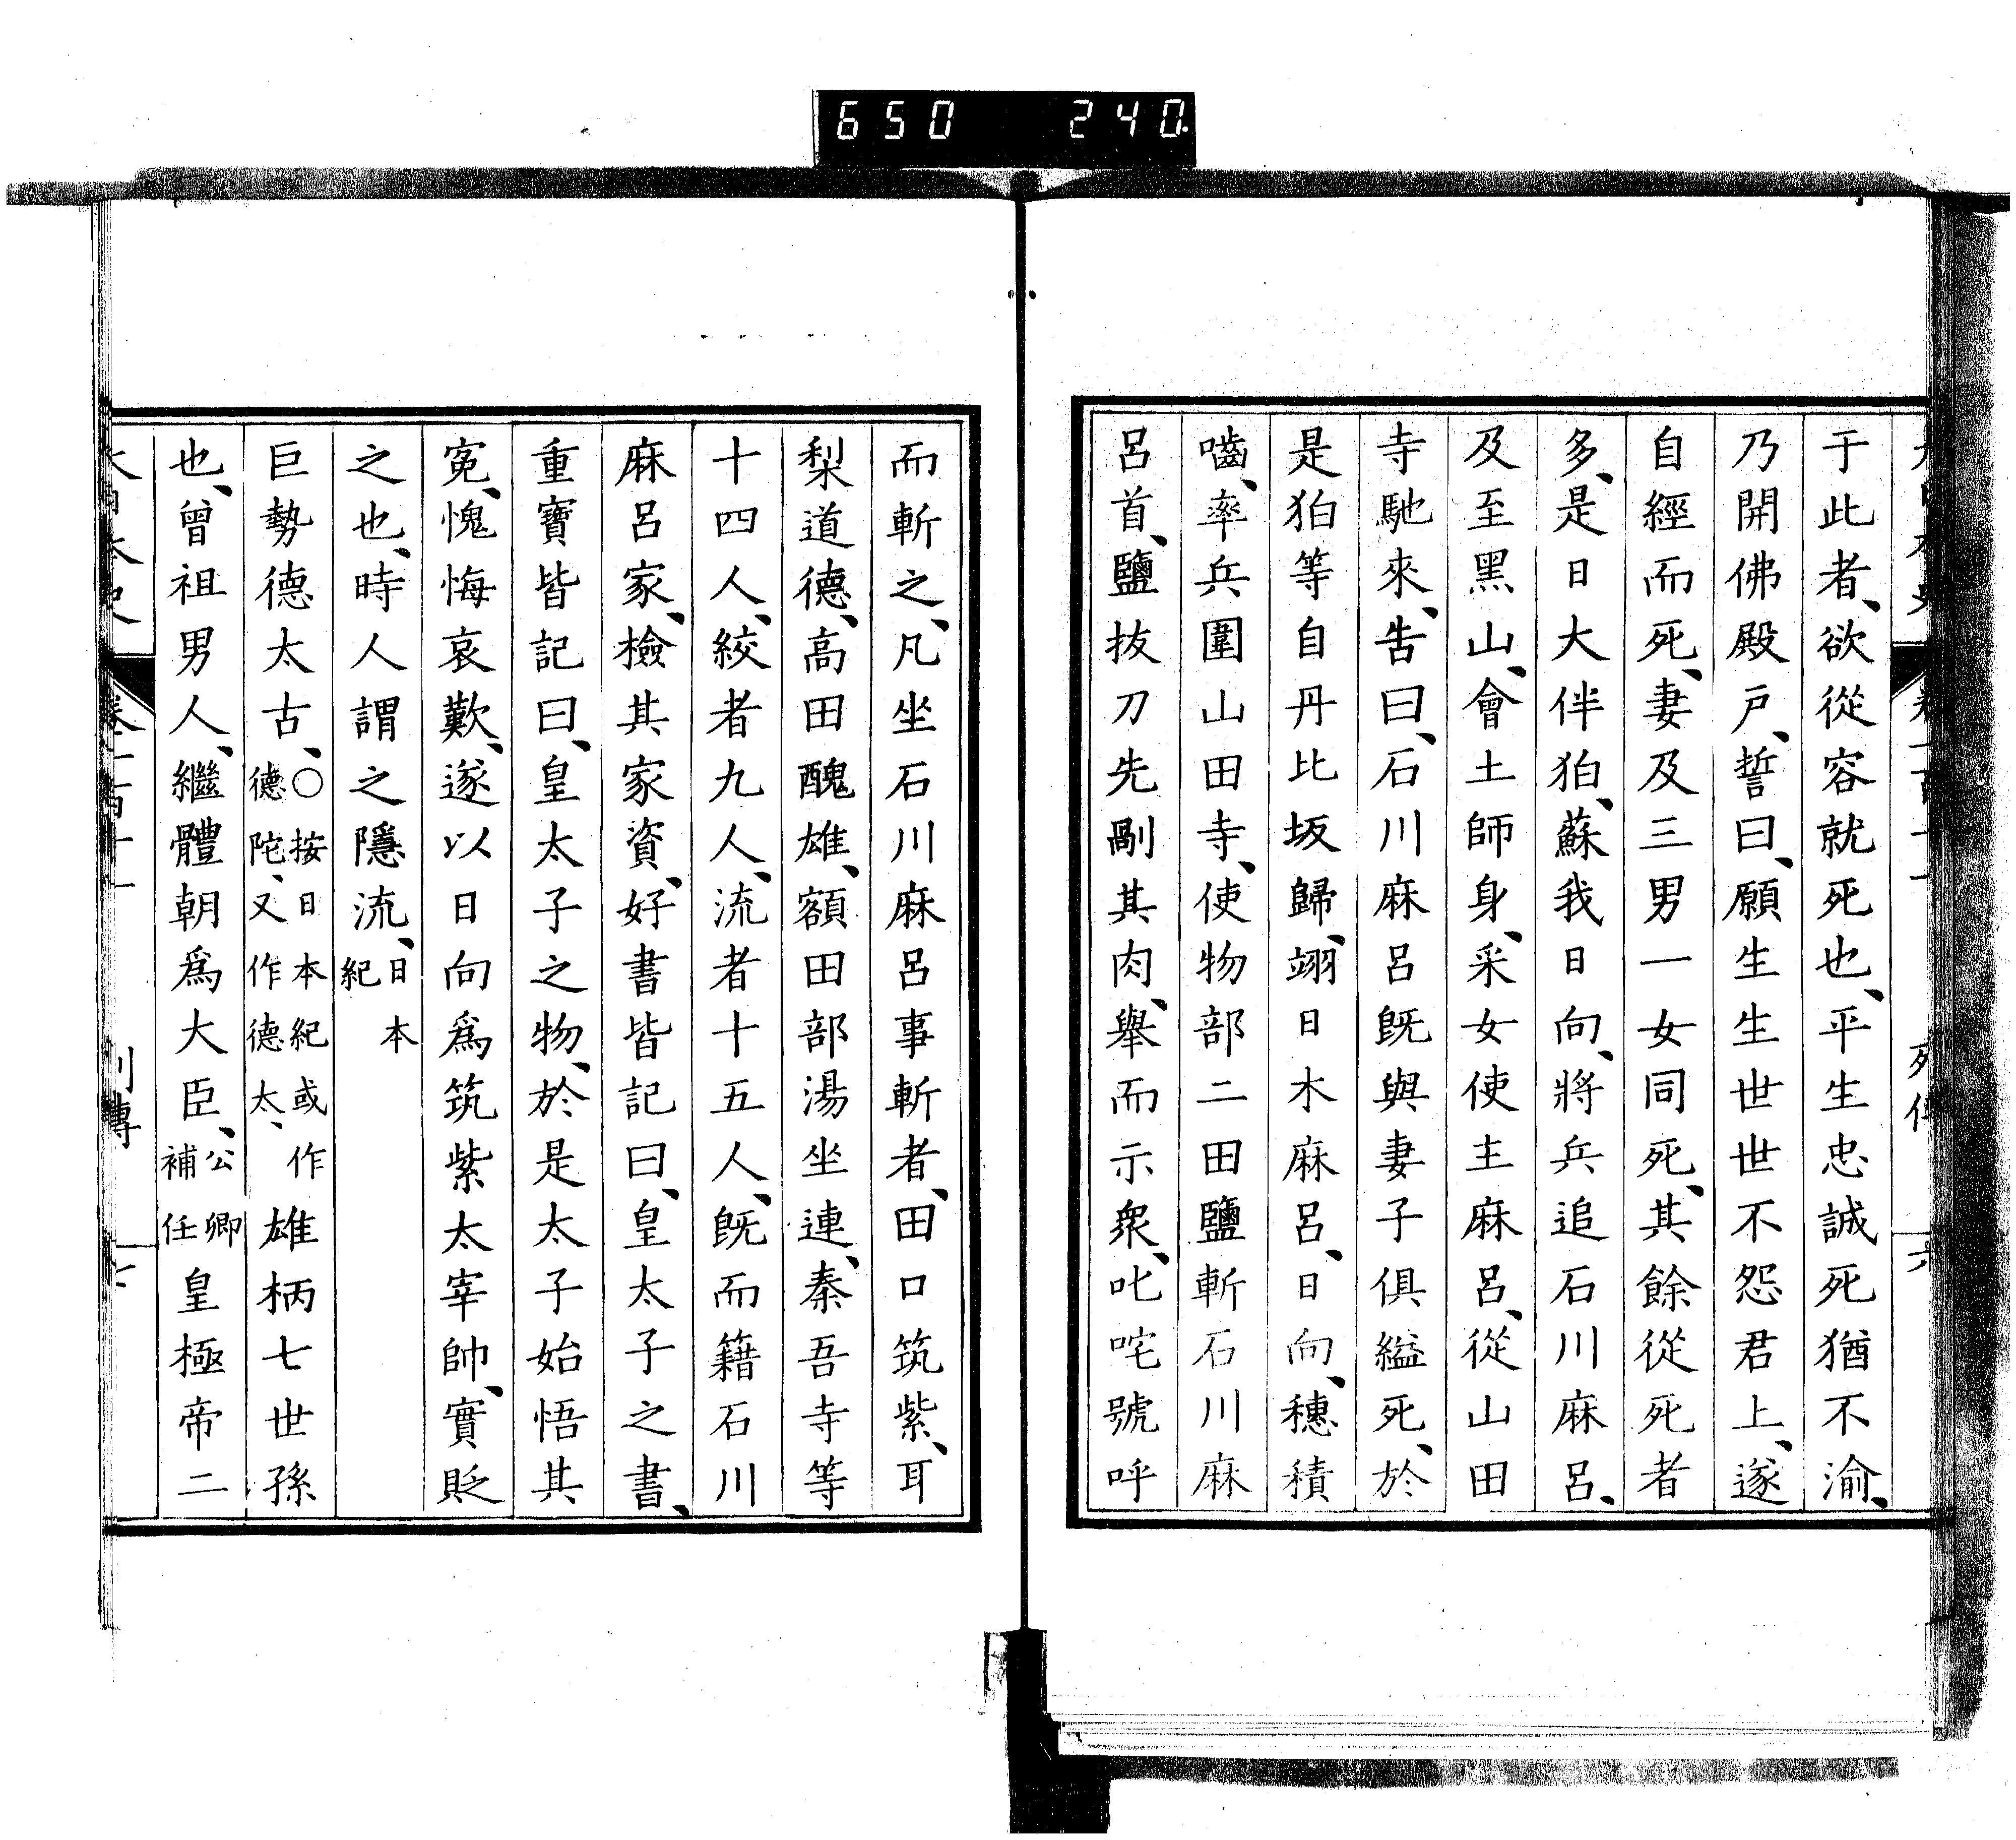 650 240
于此者、欲從容就死也、平生忠誠死猶不渝、
乃開佛殿戶、誓曰、願生生世世不怨君上、遂
自經而死、妻及三男一女同死、其餘從死者
多、是日大伴狛、蘇我日向、將兵追石川麻呂、
及至黑山、會土師身、采女使主麻呂、從山田
寺馳來、告曰、石川麻呂旣與妻子俱縊死、於
是狛等自丹比坂歸、翊日木麻呂、日向、穗積
嚙、率兵圍山田寺、使物部二田鹽斬石川麻
呂首、鹽拔刀先剮其肉、舉而示衆、叱咤號呼
而斬之、凡坐石川麻呂事斬者、田口筑紫、耳
梨道德、高田醜雄、額田部湯坐連、秦吾寺等
十四人、絞者九人、流者十五人、旣而籍石川
麻呂家、檢其家資、好書皆記曰、皇太子之書、
重寶皆記曰、皇太子之物、於是太子始悟其
寃、愧悔哀歎、遂以日向爲筑紫太宰帥、實貶
之也、時人謂之隱流、日本紀
巨勢德太古、〇按日本紀或作德陀、又作德太、雄柄七世孫
也、曾祖男人、繼體朝爲大臣、公卿補任皇極帝二
大日本史 卷一百十一 列傳 七